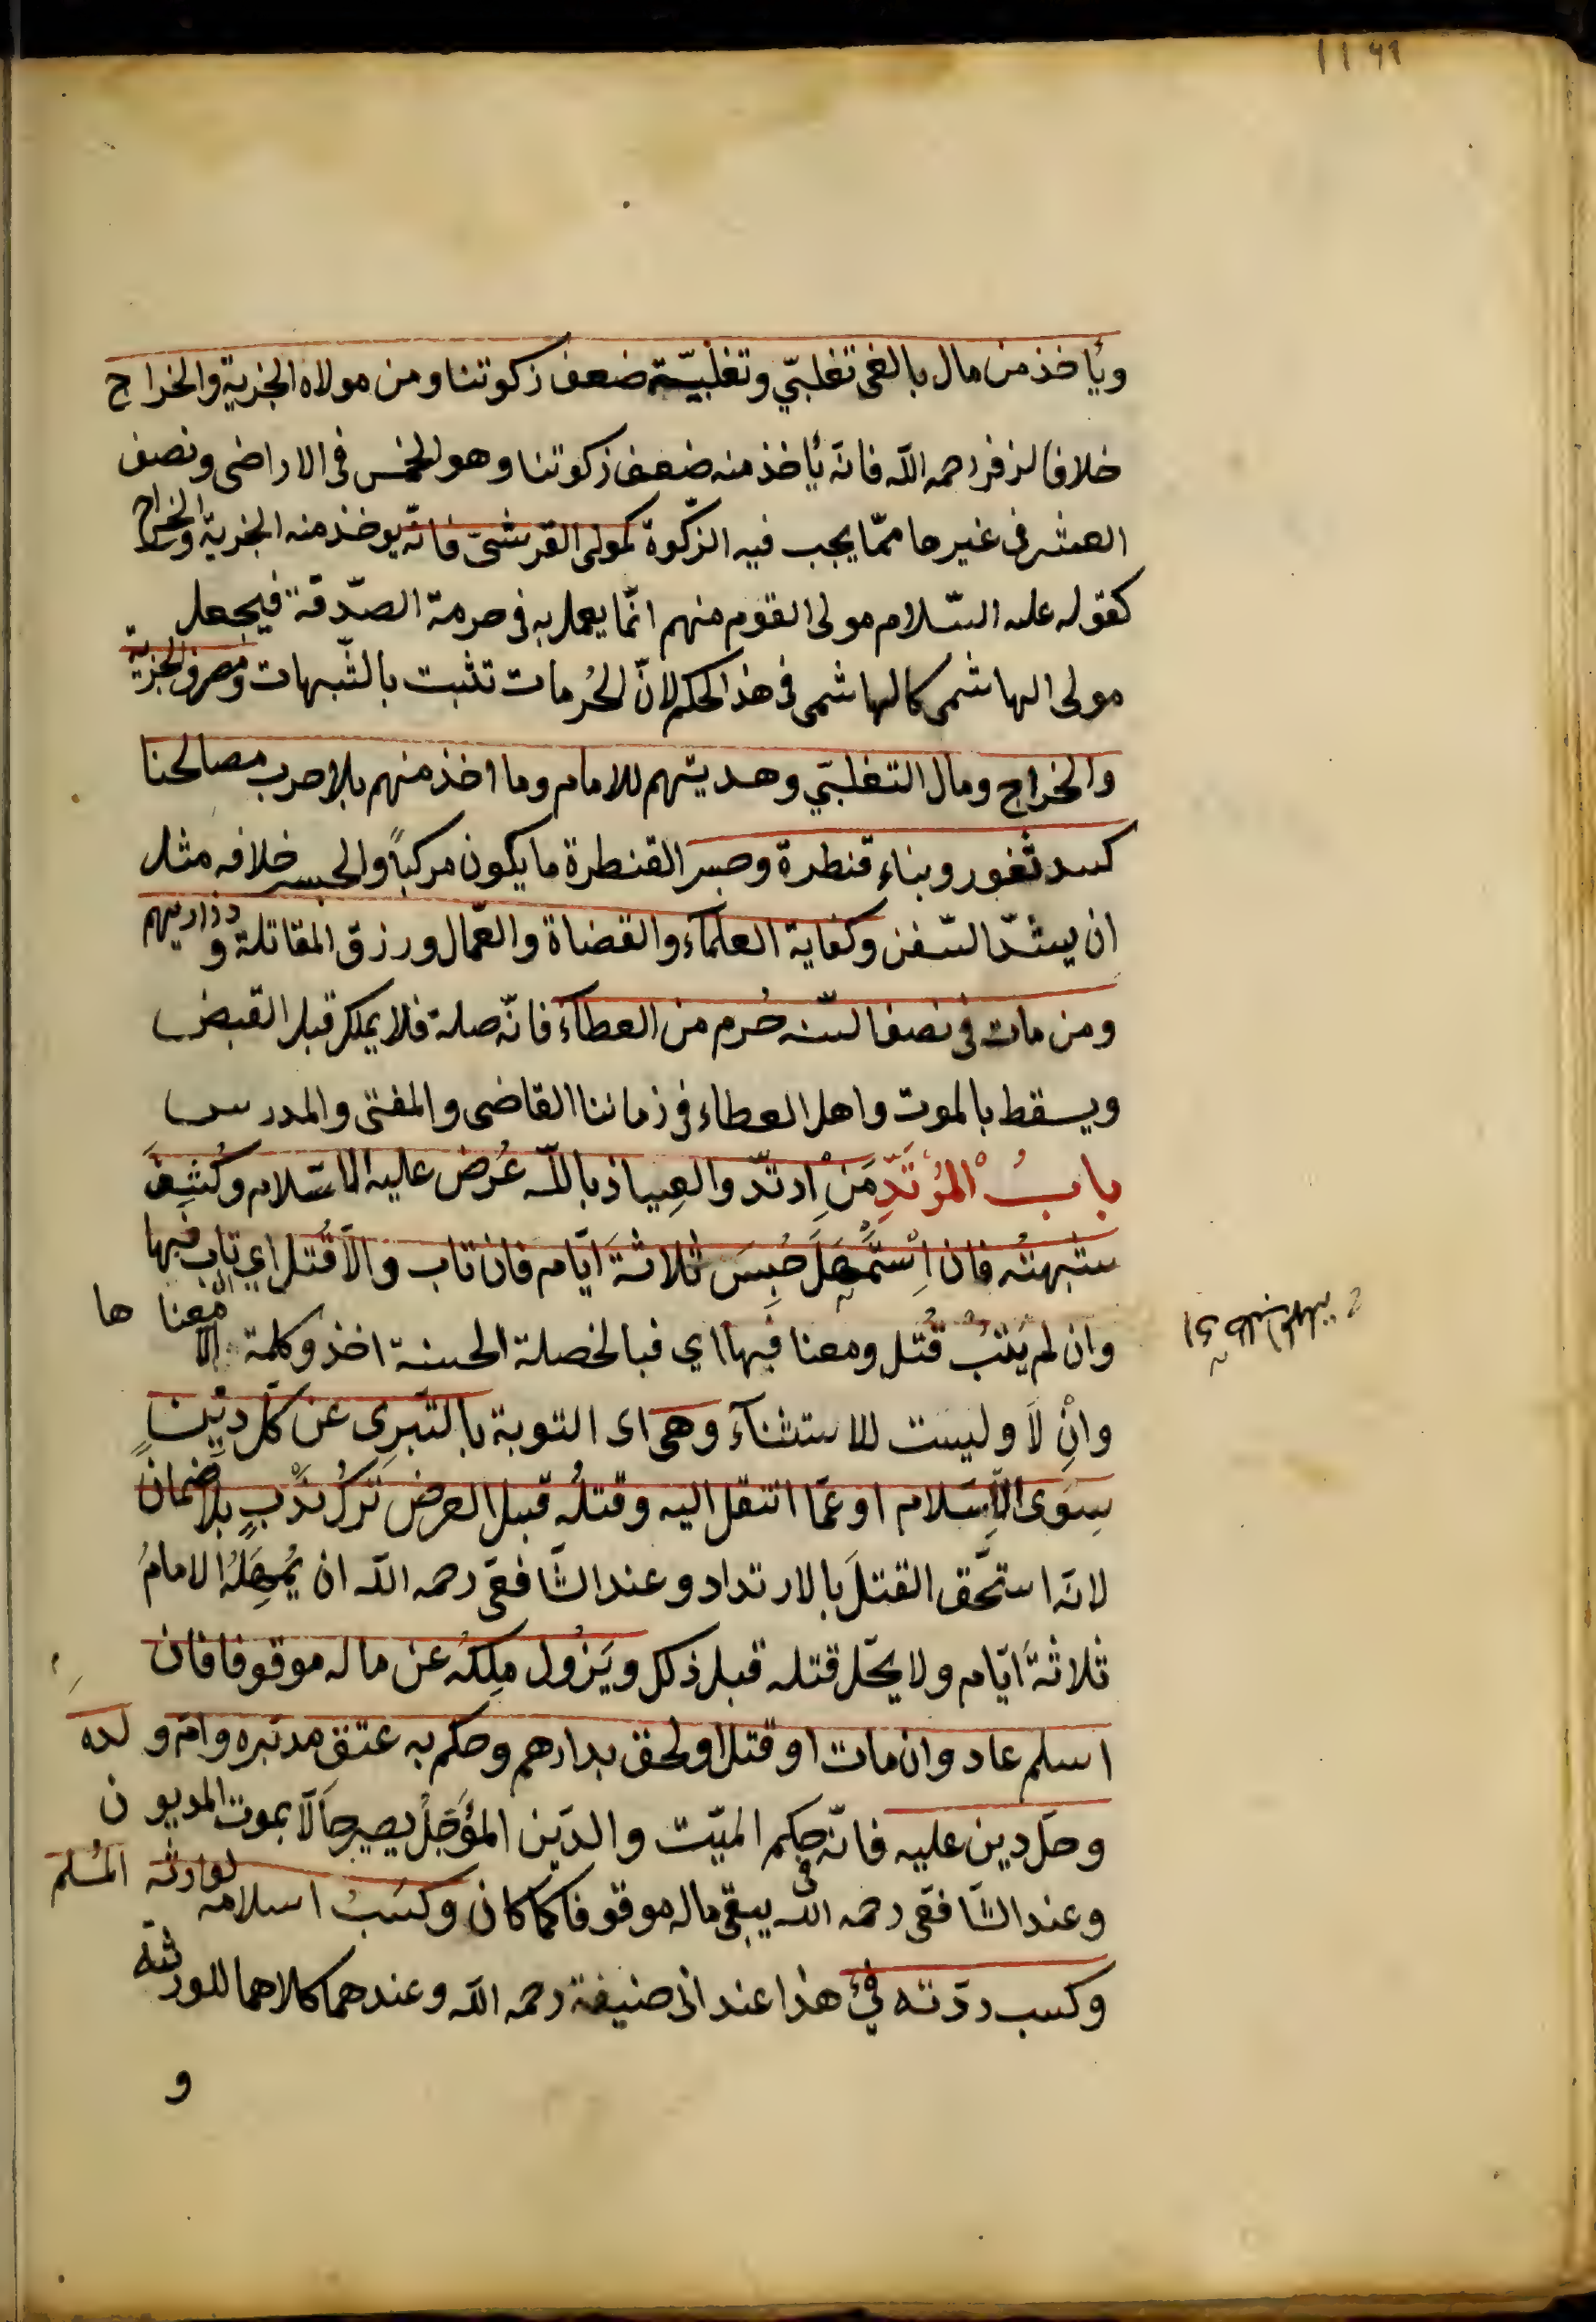 ويأخذ من مال بالغى تغلبّي وتغلبيّة ضعف زكوتنا ومن مولاه الجزية والخراج
خلافا لزفر رحمه اللّه فانّه يأخذ منه ضعف زكوتنا وهو الخمس فى الاراضى ونصف
العشر فى غيرها ممّا يجب فيه الزّكوة كمولى القرشىّ فانّه يوخذ منه الجزيّة والخراج
كقوله عليه السّلام مولى القوم منهم انّما يعمل به فى حرمة الصّدقة فيجعل
مولى الهاشمى كالهاشمى فى هذ الحكم لانّ الحُرمات تثبت بالشّبهات ومصرف الجزية
والخراج ومال التغلبّي وهديتهم للامام وما اخذ منهم بلا حرب مصالحنا
كسد ثغور وبناء قنطرة وجسر القنطرة ما يكون مركباً والجسر خلافه مثل
ان يشدّ السّفن وكفاية العلمآء والقضاة والعّمال ورزق المقاتلة وذراريهم
ومن مات فى نصف السّنه حُرم من العطآء فانّه صلة فلا يملك قبل القبض
ويسقط بالموت واهل العطاء فى زماننا القاضى والمفتى والمدرس
بابُ المُرْتَدِّ مَنِ ارتدّ والعِياذ باللّه عُرض عليه الاسّلام وكُشِفَ
شبهتُه فان اِسْتَمْهَلَ حُبِسَ ثلاثةَ ايّام فان تاب والّا قُتل اي تاب فبها
وان لم يَتُبْ قُتل ومعنا فبها اي فبالخصلة الحسنة اخذ وكلمة الّا معنا ها
وانْ لَا وليست للاستثنآء وهى اى التوبة بالتّبرِى عن كلّ دِينٍ
سِوَى الاِسَلام او عمّا انتقل اليه وقتلُه قبل العرض تركُ نَدْبٍ بلا ضمانٍ
لانّه استحّق القتلَ بالارتداد وعند الشّافعّى رحمه اللّه ان يُمهِلَهُ الامامُ
ثلاثةَ ايّام ولا يحّل قتله قبل ذلك ويَزُول مِلكُه عن ماله موقوفا فان
اسلم عاد وان مات او قتل او لحق بدارهم وحكم به عتق مدبّره وامّ ولده
وحلّ دين عليه فانّه فى حكم الميّت والدّين المؤَجّلُ يصير حَالّا بموت المديون
وعند الشّافعّى رحمه اللّه يبقى ماله موقوفا كما كان وكسَبُ اسلامه لوارثه المُسلم
وكسب ردّته فيْء هذا عند ابى حنيفة رحمه اللّه وعندهما كلاهما للورثته
و